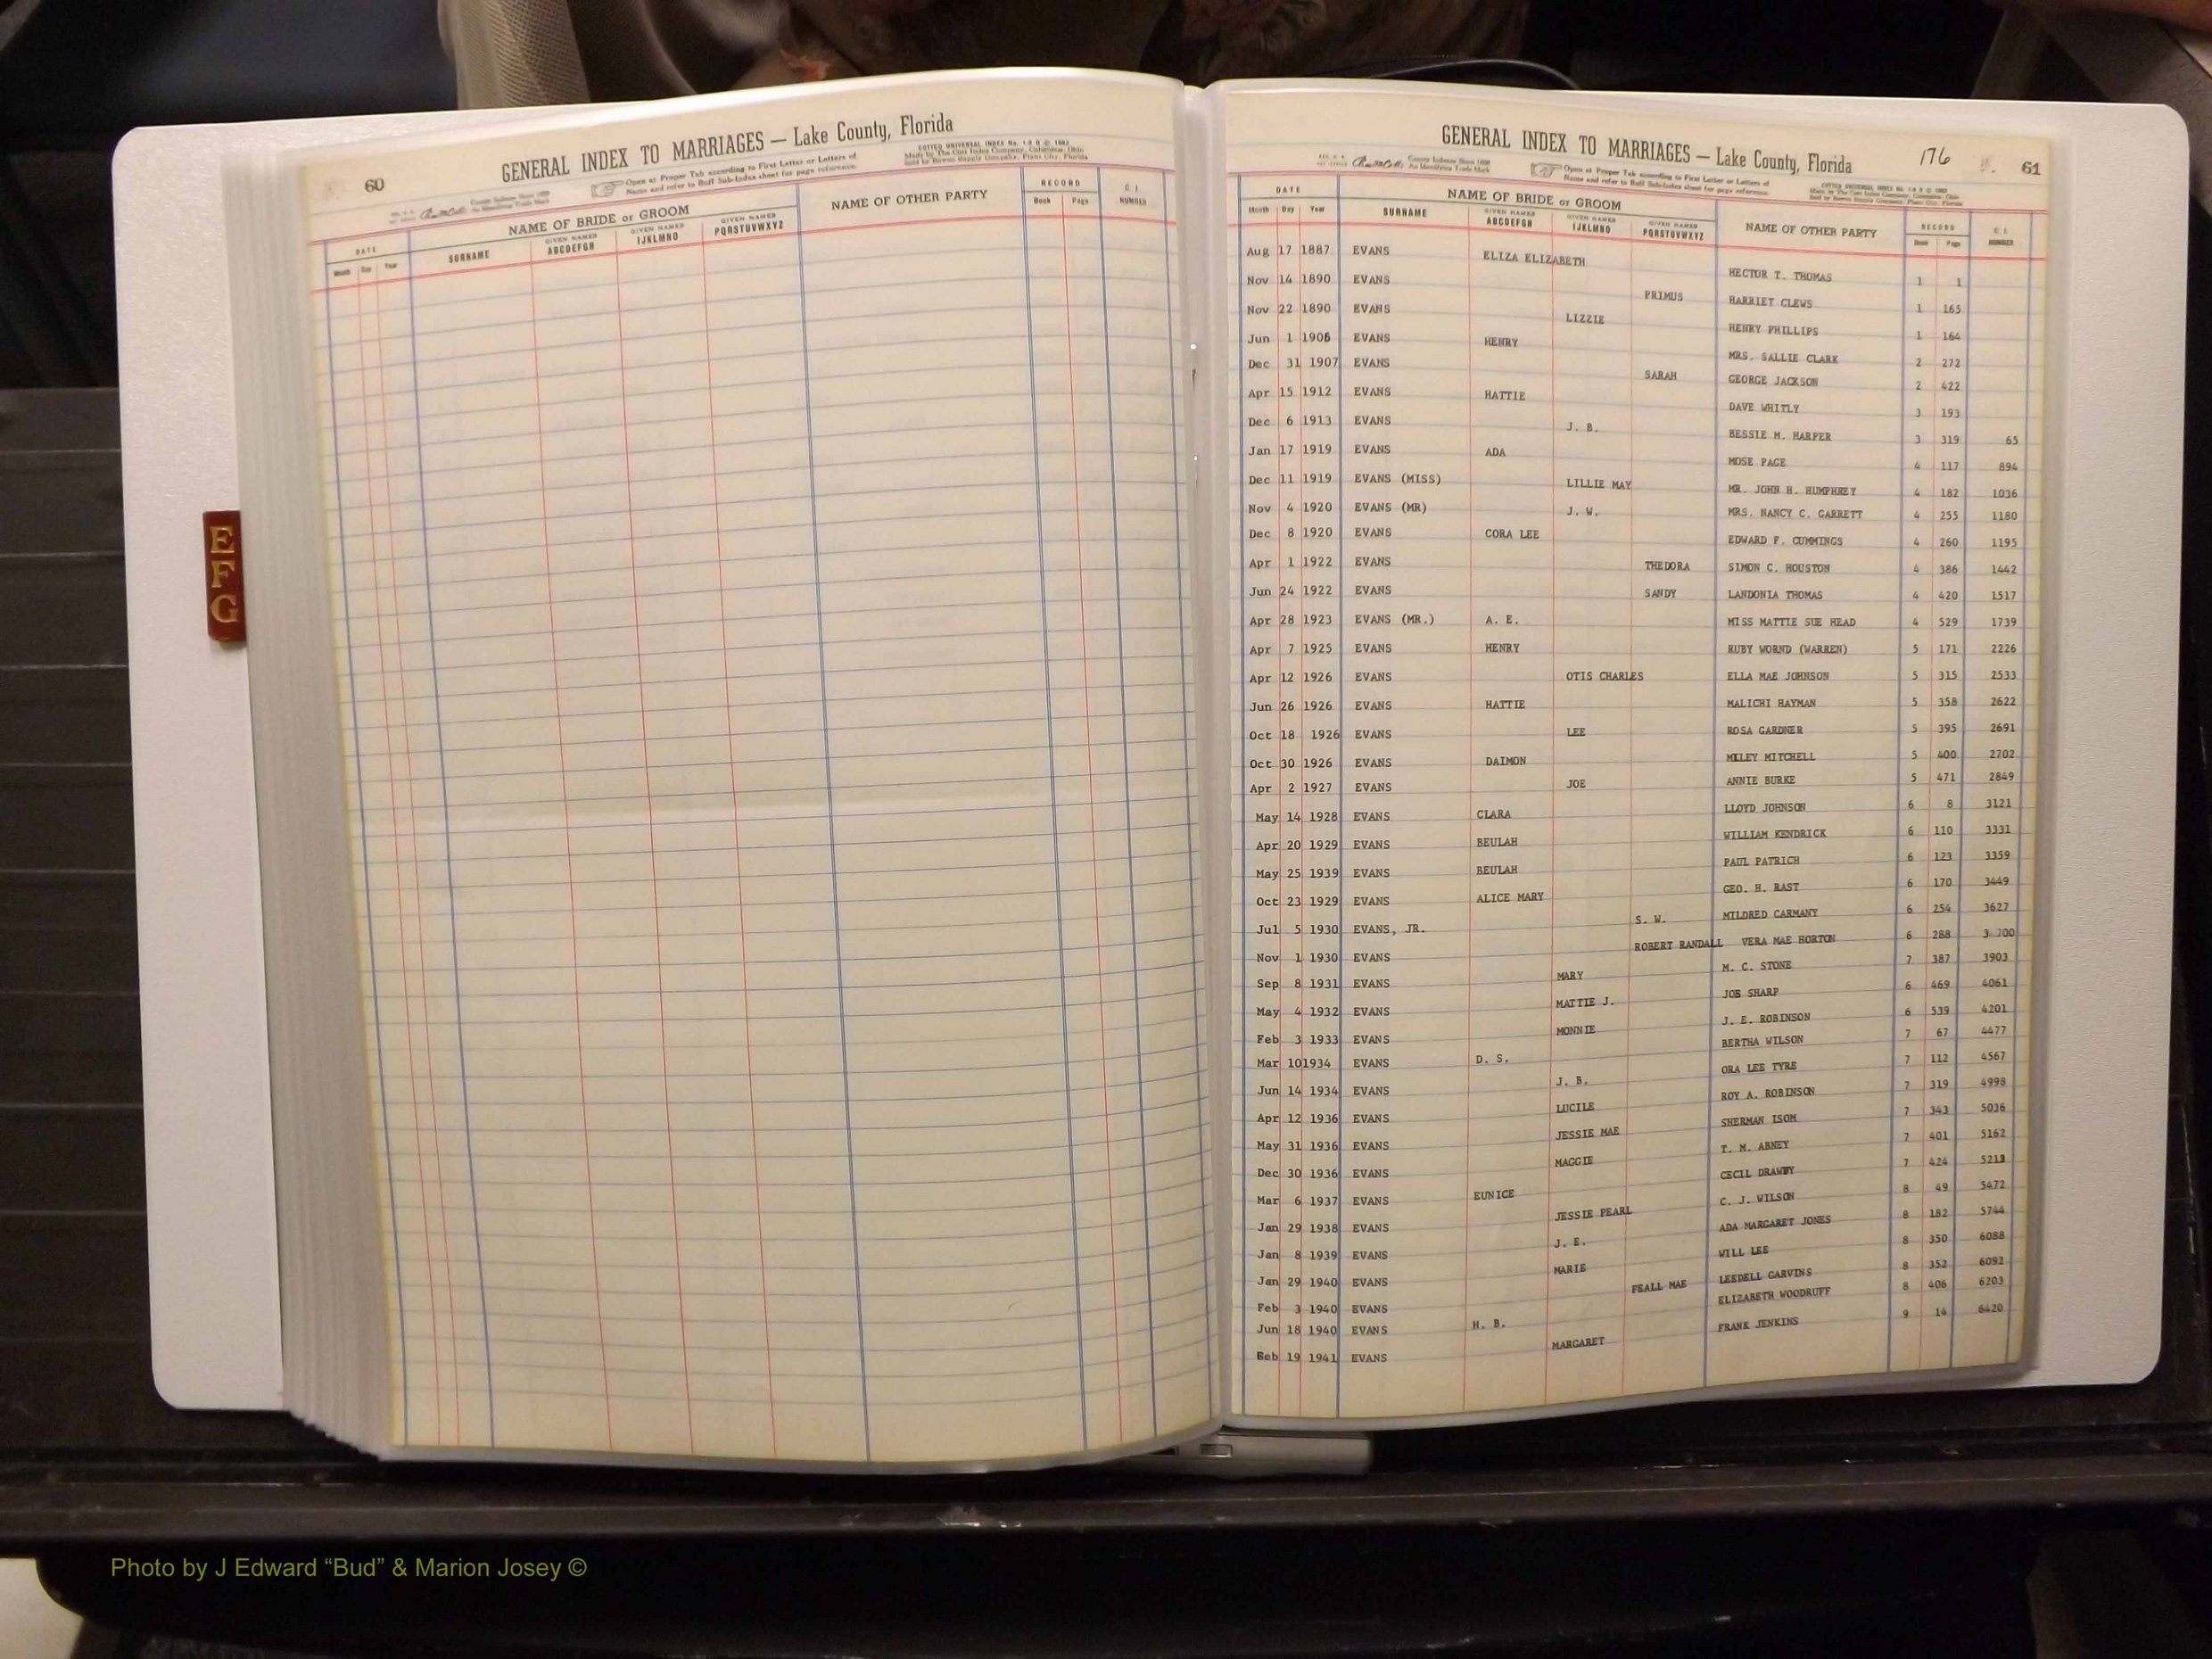 60
GENERAL INDEX TO MARRIAGES — Lake County, Florida
Open at Proper Tab according to First Letter or Letters of
Name and refer to Buff Sub-Index sheet for page reference.
COTTCO UNIVERSAL INDEX
Made by The Cott Index Company, Columbus, Ohio
Sold by Bowen Supply Company, Plant City, Florida
DATE NAME OF BRIDE or GROOM NAME OF OTHER PARTY RECORD G. I.
Month Day Year SURNAME GIVEN NAMES ABCDEFGH GIVEN NAMES IJKLMNO GIVEN NAMES PQRSTUVWXYZ Book Page NUMBER
E
F
G
GENERAL INDEX TO MARRIAGES — Lake County, Florida 176 61
Open at Proper Tab according to First Letter or Letters of
Name and refer to Buff Sub-Index sheet for page reference.
DATE NAME OF BRIDE or GROOM NAME OF OTHER PARTY RECORD G. I.
Month Day Year SURNAME GIVEN NAMES ABCDEFGH GIVEN NAMES IJKLMNO GIVEN NAMES PQRSTUVWXYZ Book Page NUMBER
Aug 17 1887 EVANS ELIZA ELIZABETH HECTOR T. THOMAS 1 1
Nov 14 1890 EVANS PRIMUS HARRIET CLEWS 1 165
Nov 22 1890 EVANS LIZZIE HENRY PHILLIPS 1 164
Jun 1 1906 EVANS HENRY MRS. SALLIE CLARK 2 272
Dec 31 1907 EVANS SARAH GEORGE JACKSON 2 422
Apr 15 1912 EVANS HATTIE DAVE WHITLY 3 193
Dec 6 1913 EVANS J. B. BESSIE M. HARPER 3 319 65
Jan 17 1919 EVANS ADA MOSE PAGE 4 117 894
Dec 11 1919 EVANS (MISS) LILLIE MAY MR. JOHN H. HUMPHREY 4 182 1036
Nov 4 1920 EVANS (MR) J. W. MRS. NANCY C. GARRETT 4 255 1180
Dec 8 1920 EVANS CORA LEE EDWARD F. CUMMINGS 4 260 1195
Apr 1 1922 EVANS THEDORA SIMON C. HOUSTON 4 386 1442
Jun 24 1922 EVANS SANDY LANDONIA THOMAS 4 420 1517
Apr 28 1923 EVANS (MR.) A. E. MISS MATTIE SUE HEAD 4 529 1739
Apr 7 1925 EVANS HENRY RUBY WORND (WARREN) 5 171 2226
Apr 12 1926 EVANS OTIS CHARLES ELLA MAE JOHNSON 5 315 2533
Jun 26 1926 EVANS HATTIE MALICHI HAYMAN 5 358 2622
Oct 18 1926 EVANS LEE ROSA GARDNER 5 395 2691
Oct 30 1926 EVANS DAIMON MILEY MITCHELL 5 400 2702
Apr 2 1927 EVANS JOE ANNIE BURKE 5 471 2849
May 14 1928 EVANS CLARA LLOYD JOHNSON 6 8 3121
Apr 20 1929 EVANS BEULAH WILLIAM KENDRICK 6 110 3331
May 25 1939 EVANS BEULAH PAUL PATRICH 6 123 3359
Oct 23 1929 EVANS ALICE MARY GEO. H. RAST 6 170 3449
Jul 5 1930 EVANS, JR. S. W. MILDRED CARMANY 6 254 3627
Nov 1 1930 EVANS ROBERT RANDALL VERA MAE HORTON 6 288 3 700
Sep 8 1931 EVANS MARY M. C. STONE 7 387 3903
May 4 1932 EVANS MATTIE J. JOE SHARP 6 469 4061
Feb 3 1933 EVANS MONNIE J. E. ROBINSON 6 539 4201
Mar 10 1934 EVANS D. S. BERTHA WILSON 7 67 4477
Jun 14 1934 EVANS J. B. ORA LEE TYRE 7 112 4567
Apr 12 1936 EVANS LUCILE ROY A. ROBINSON 7 319 4998
May 31 1936 EVANS JESSIE MAE SHERMAN ISOM 7 343 5036
Dec 30 1936 EVANS MAGGIE T. M. ABNEY 7 401 5162
Mar 6 1937 EVANS EUNICE CECIL DRAWDY 7 424 5213
Jan 29 1938 EVANS JESSIE PEARL C. J. WILSON 8 49 5472
Jan 8 1939 EVANS J. E. ADA MARGARET JONES 8 182 5744
Jan 29 1940 EVANS MARIE WILL LEE 8 350 6088
Feb 3 1940 EVANS FEALL MAE LEEDELL GARVINS 8 352 6092
Jun 18 1940 EVANS H. B. ELIZABETH WOODRUFF 8 406 6203
Feb 19 1941 EVANS MARGARET FRANK JENKINS 9 14 6420
Photo by J Edward “Bud” & Marion Josey ©